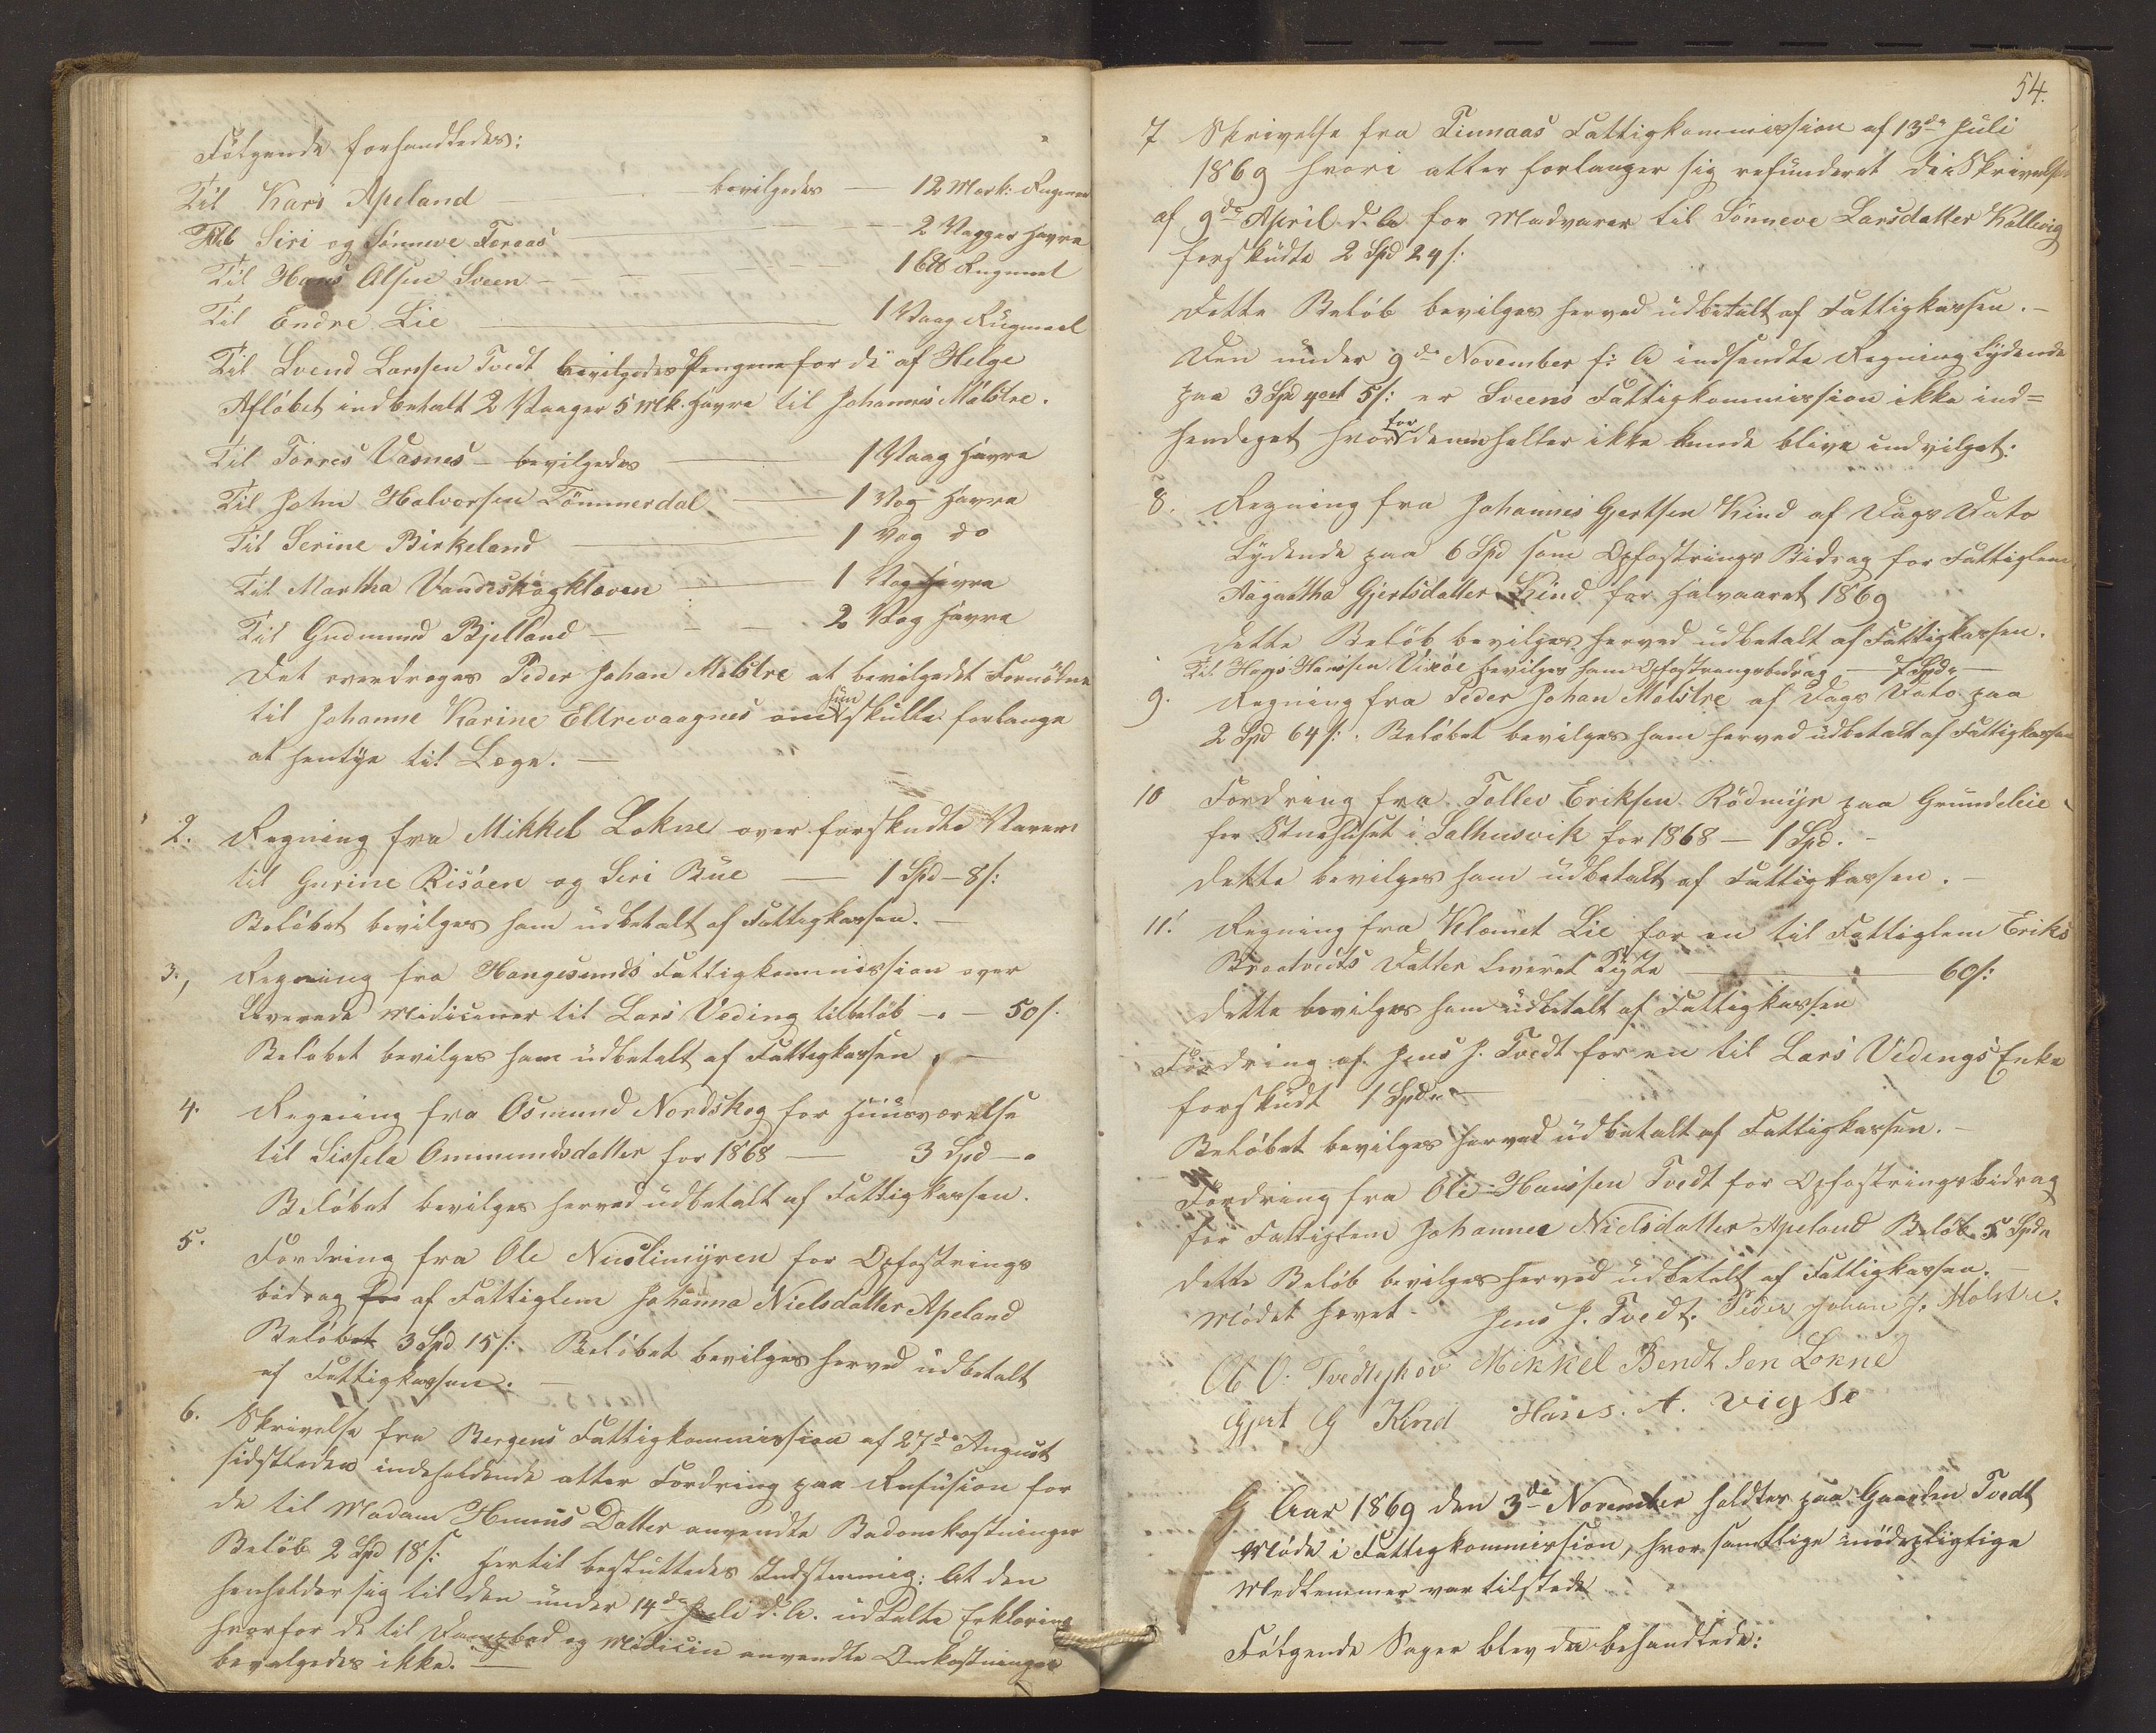 Følgende forhandledes:
Til Kari Apeland bevilgedes 12 Mark: Rugmeel
Til Siri og Sønneve Foreaas 2 Vaager Havre
Til Hans Olsen Sveen 16 ℔ Rugmeel
Til Endre Lie 1 Vaag Rugmeel
Til Svend Larsen Tvedt bevilgedes Pengene for de af Helge
Afløbet indbetalt 2 Vaager 5 Mk. Havre til Johannes Mølstre.
Til Torres Vasnes bevilgedes 1 Vaag Havre
Til John Halvorsen Tømmerdal 1 Vog Havre
Til Serine Birkeland 1 Vog do
Til Martha Vandskogkloven 1 Vog Havre
Til Gudmund Bjelland 2 Vog Havre
Det overdroges Peder Johan Mølstre at bevilgedet Fornødne
til Johanne Karine Eltrevaagnes om hun skulle forlange
at hentye til Læge. —
2. Regning fra Mikkel Lokne over forskudte Varer
til Gurine Risøen og Siri Bue — 1 Spd — 8 s:
Beløbet bevilges ham udbetalt af Fattigkassen. —
3., Regning fra Haugesunds Fattigkommission over
leverede Mediciner til Lars Veding tilbeløb — 50 s.
Beløbet bevilges ham udbetalt af Fattigkassen. —
4. Regning fra Osmund Nordskog for Huusværelse
til Sissela Ommundsdatter for 1868 — 3 Spd —
Beløbet bevilges herved udbetalt af Fattigkassen.
5. Fordring fra Ole Nuslimyren for Opfostrings
bidrag for af Fattiglem Johanna Nielsdatter Apeland
Beløbet 3 Spd 15 s:. Beløbet bevilges herved udbetalt
af Fattigkassen. —
6. Skrivelse fra Bergens Fattigkommission af 27de August
sidstleden indeholdende atter Fordring paa Refusion for
de til Madam Datter anvendte Badomkostninger
Beløb 2 Spd 18 s: Hertil besluttedes Indstemmig: At den
henholder sig til den under 14de Juli d. A. udtalte Erklæring
hvorfor de til Dampbad og Medicin anvendte Omkostninger
bevilgedes ikke. —
54.
7 Skrivelse fra Finnaas Fattigkommission af 13de Juli
1869 hvori atter forlanger sig refunderet de i Skrivelse
af 9de April d. A. for Madvarer til Sønneve Larsdatter Kallevig
forskudte 2 Spd 24 s:
Dette Beløb bevilges herved udbetalt af Fattigkassen. —
Den under 9de November f: A indsendte Regning lydende
paa 3 Spd 5 s: er Sveens Fattigkommission ikke ind=
hendeget hvorfor den heller ikke kunde blive indvilget:
8. Regning fra Johannes Gjertsen Kind af Dags Dato
Lydende paa 6 Spd som Opfostrings Bidrag for Fattiglem
Aagaatha Gjertsdatter Kind for halvaaret 1869
Dette Beløb bevilges herved udbetalt af Fattigkassen.
Til Hans Hansen Vixøe bevilges ham Opfostringsbidrag — 7 Spd. —
9. Regning fra Peder Johan Mølstre af Dags Dato paa
2 Spd 64 s:. Beløbet bevilges ham herved udbetalt af Fattigkassen
10 Fordring fra Tollev Eriksen Rødmyr paa Grundeleie
for Stuehuset i Salhusvik for 1868 — 1 Spd. —
Dette bevilges ham udbetalt af Fattigkassen. —
11. Regning fra Klemet Lie for en til Fattiglem Eriks
Braatvedts Datter leveret Kiste 60 s:
Dette bevilges ham udbetalt af Fattigkassen
Fordring af Jens J. Tvedt for en til Lars Vedings Enke
forskudt 1 Spd. —
Beløbet bevilges herved udbetalt af Fattigkassen. —
Fordring fra Ole Hansen Tvedt for Opfostringsbidrag
for Fattiglem Johannee Nielsdatter Apeland Beløb 5 Spd.
Dette Beløb bevilges herved udbetalt af Fattigkassen. —
Mødet hævet — Jens J. Tvedt. Peder Johan J. Mølstre.
O. O. Tvedteskov Mikkel Bendt Sen Lokne
Gjert G Kind Hans. A. Vigse
I Aar 1869 den 3de November holdtes paa Gaarden Tvedt
Møde i Fattigkommission, hvor samtlige mødepligtige
Medlemmer var tilstede
Følgende Sager blev da behandlede: